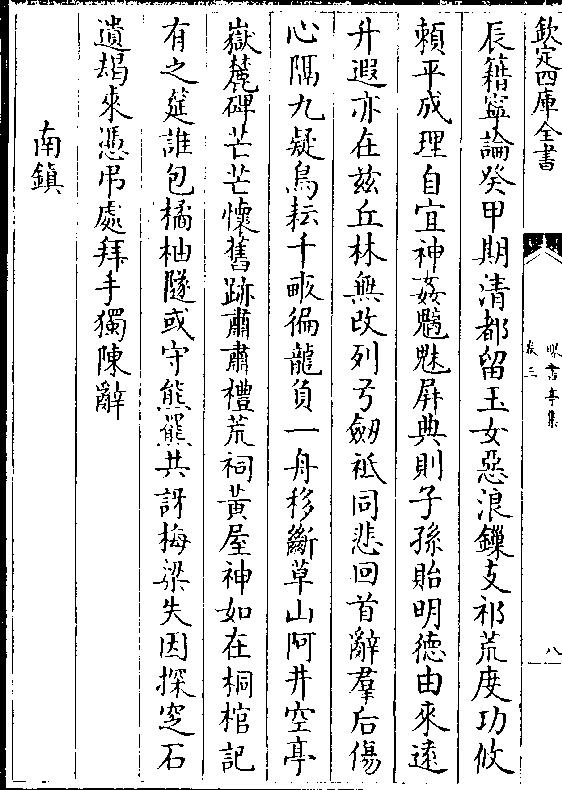 欽定四庫全書
曝書亭集
卷三
八
辰籍寧論癸甲期清都留玉女惡浪鏁支祁荒度功攸
賴平成理自宜神姦魑魅屏典則子孫貽明德由來逺
升遐亦在兹丘林無改列弓劒祗同悲回首辭羣后傷
心隔九疑鳥耘千畞徧龍負一舟移斷草山阿井空亭
嶽麓碑芒芒懷舊跡肅肅禮荒祠黄屋神如在桐棺記
有之筵誰包橘柚隧或守熊羆共訝梅梁失因探窆石
遺朅來憑弔處拜手獨陳辭
南鎮